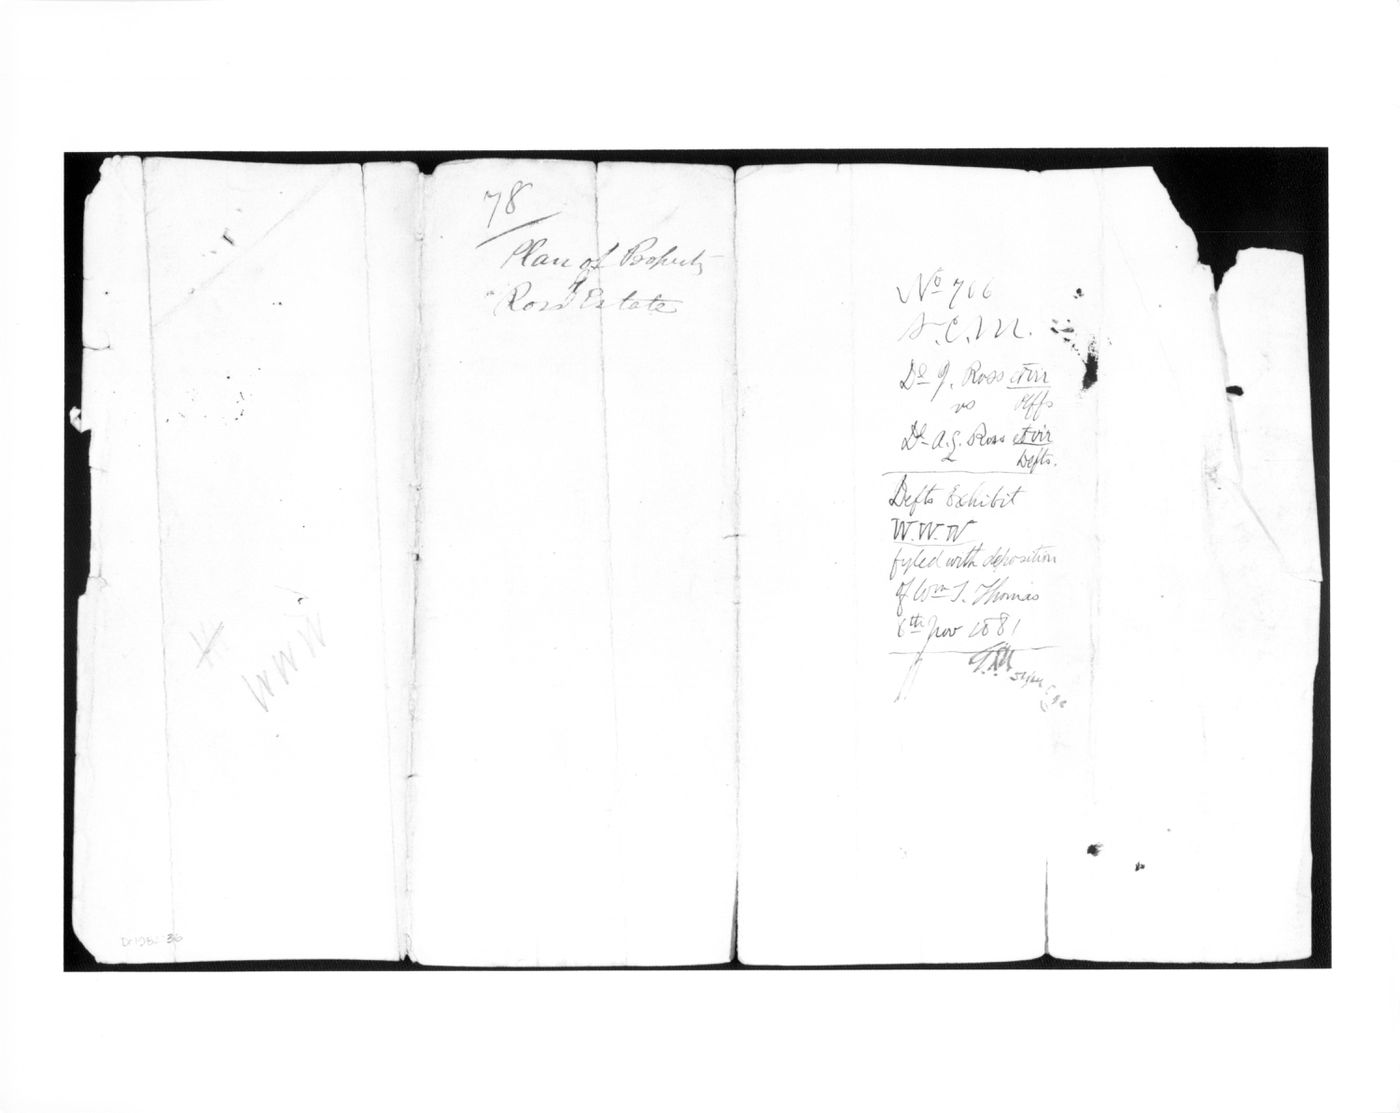 78
Plan of Property
Ross Estate
No 766
S.C.M.
De J. Ross et vir
vs Plffs
De A. G. Ross et vir
Defts.
Defts Exhibit
W.W.W
fyled with deposition
of Wm S. Thomas
6th Nov 1881
W W W